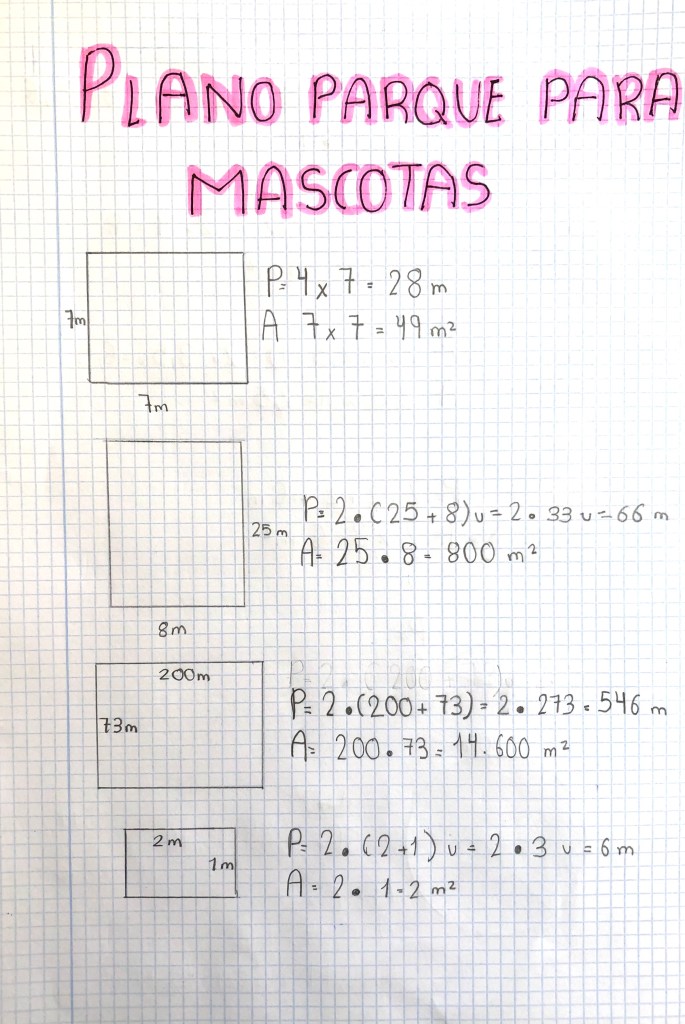 PLANO PARQUE PARA
MASCOTAS
7m
P= 4 x 7 = 28 m
A 7 x 7 = 49 m²
7m
25 m
P= 2 • (25 + 8) u = 2 • 33 u = 66 m
A= 25 • 8 = 800 m²
8m
200m
73m
P= 2 • (200 + 73) = 2 • 273 = 546 m
A= 200 • 73 = 14.600 m²
2m
1m
P= 2 • (2+1) u = 2 • 3 u = 6 m
A = 2 • 1 = 2 m²